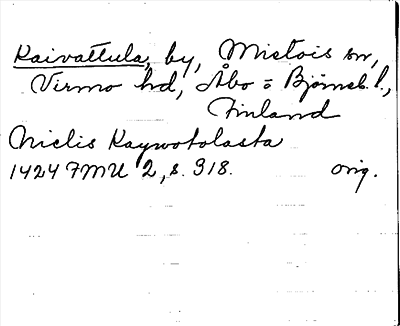 Kaivattula, by, Mietois sn,
Virmo hd, Åbo o Björneb. l.,
Finland
Niclis Kaywotolasta
1424 FMU 2, s. 318. orig.